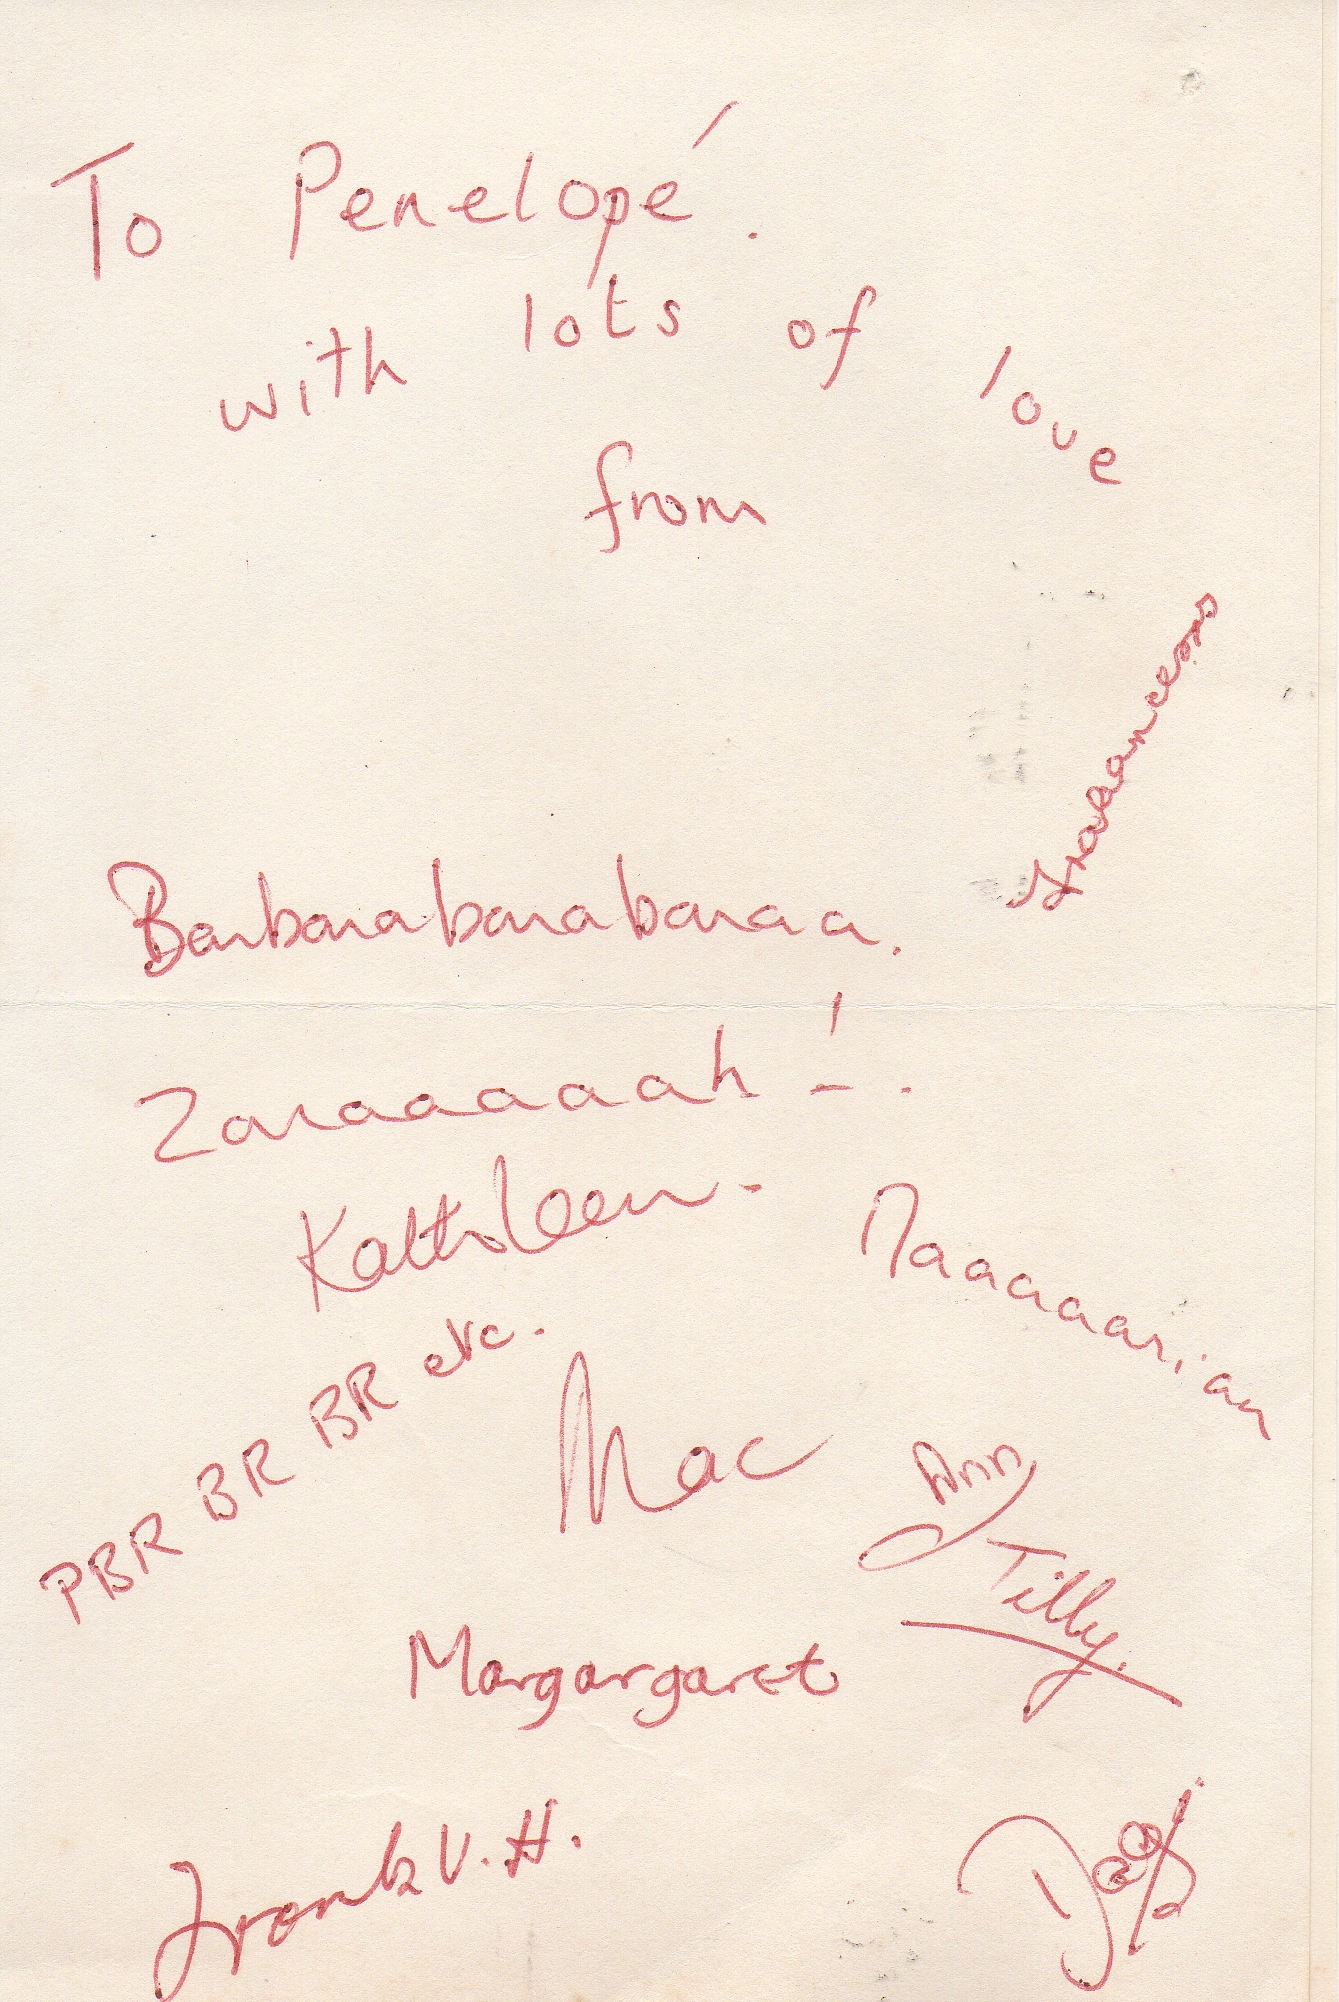 To Penelopé.
with lots of love
from
Barbarabarabaraa.
Zaraaaaah!.
Kathleen.
Maaaaarian
PBR BR BR etc.
Mac
Ann
Tilly.
Margargaret
Frank V. H.